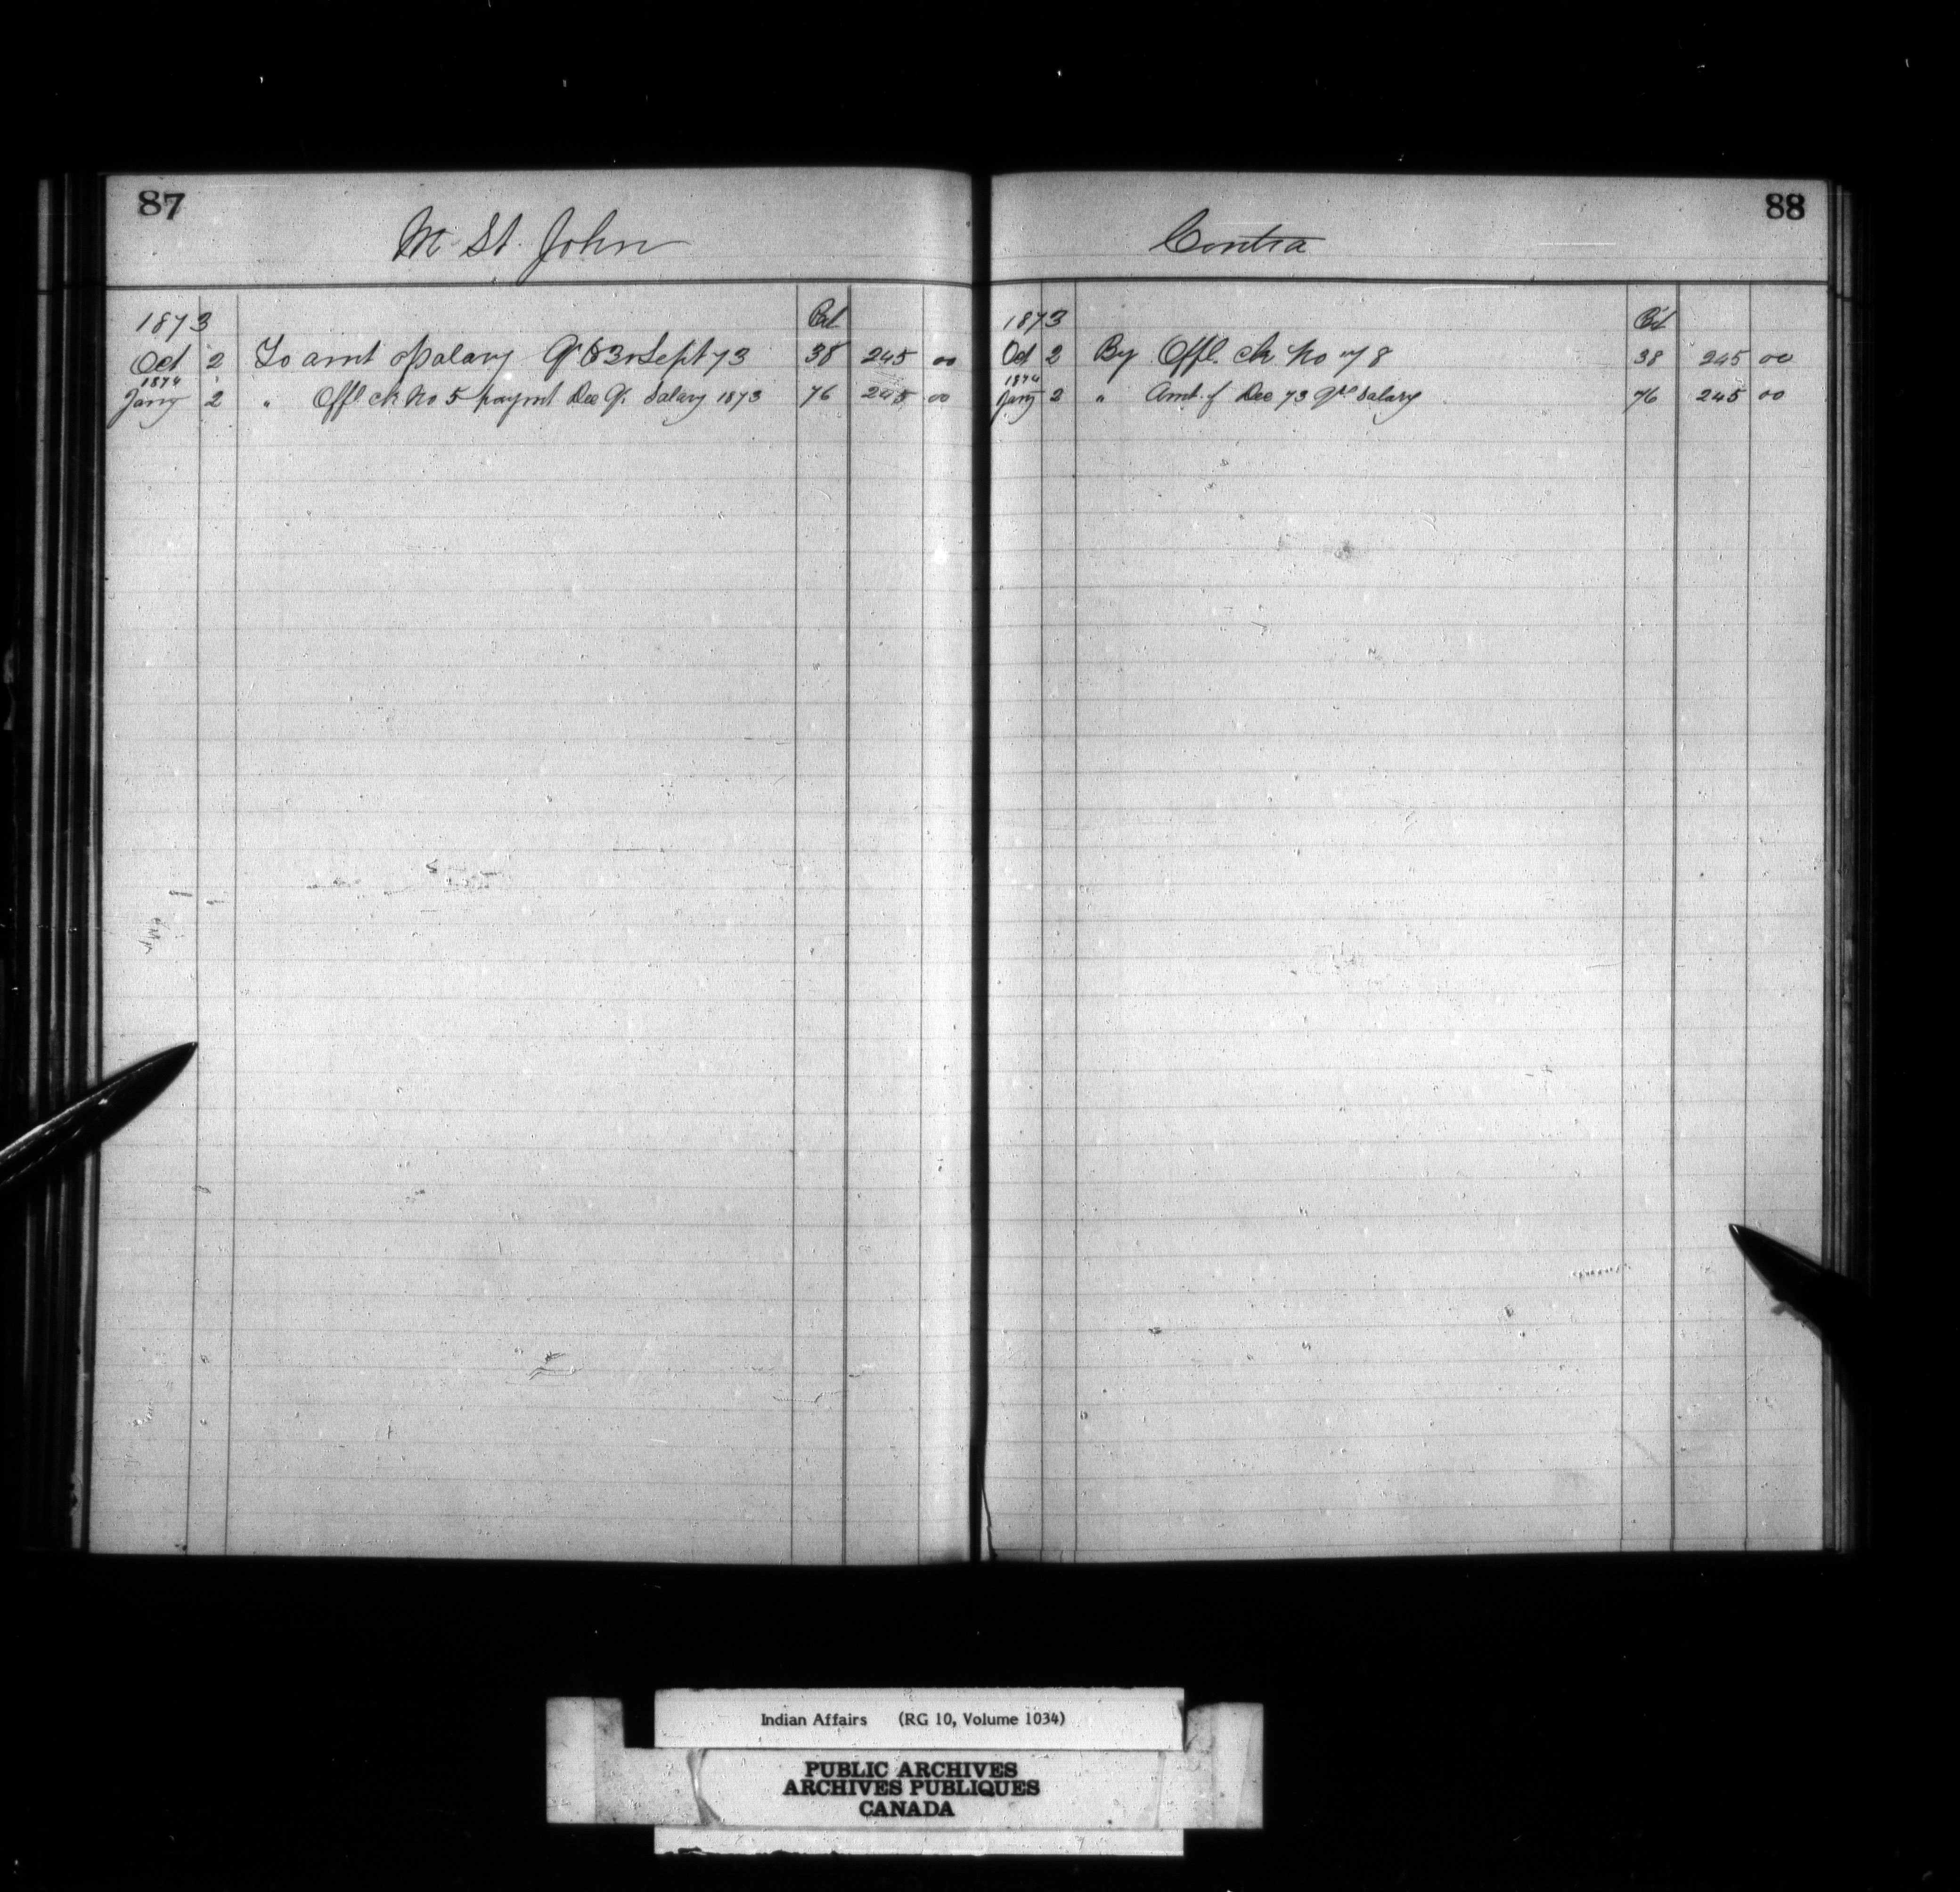 87
M St. John
1873
Oct 2 To amt of Salary Qr Sept 73 38 245 00
1874
Jany 2 " Offl ck No 5 paymt Dec Qr Salary 1873 76 245 00
88
Contra
1873
Oct 2 By Offl. ck No 78 38 245 00
1874
Jany 2 " Amt. of Dec 73 Qr Salary 76 245 00
Indian Affairs (RG 10, Volume 1034)
PUBLIC ARCHIVES
ARCHIVES PUBLIQUES
CANADA